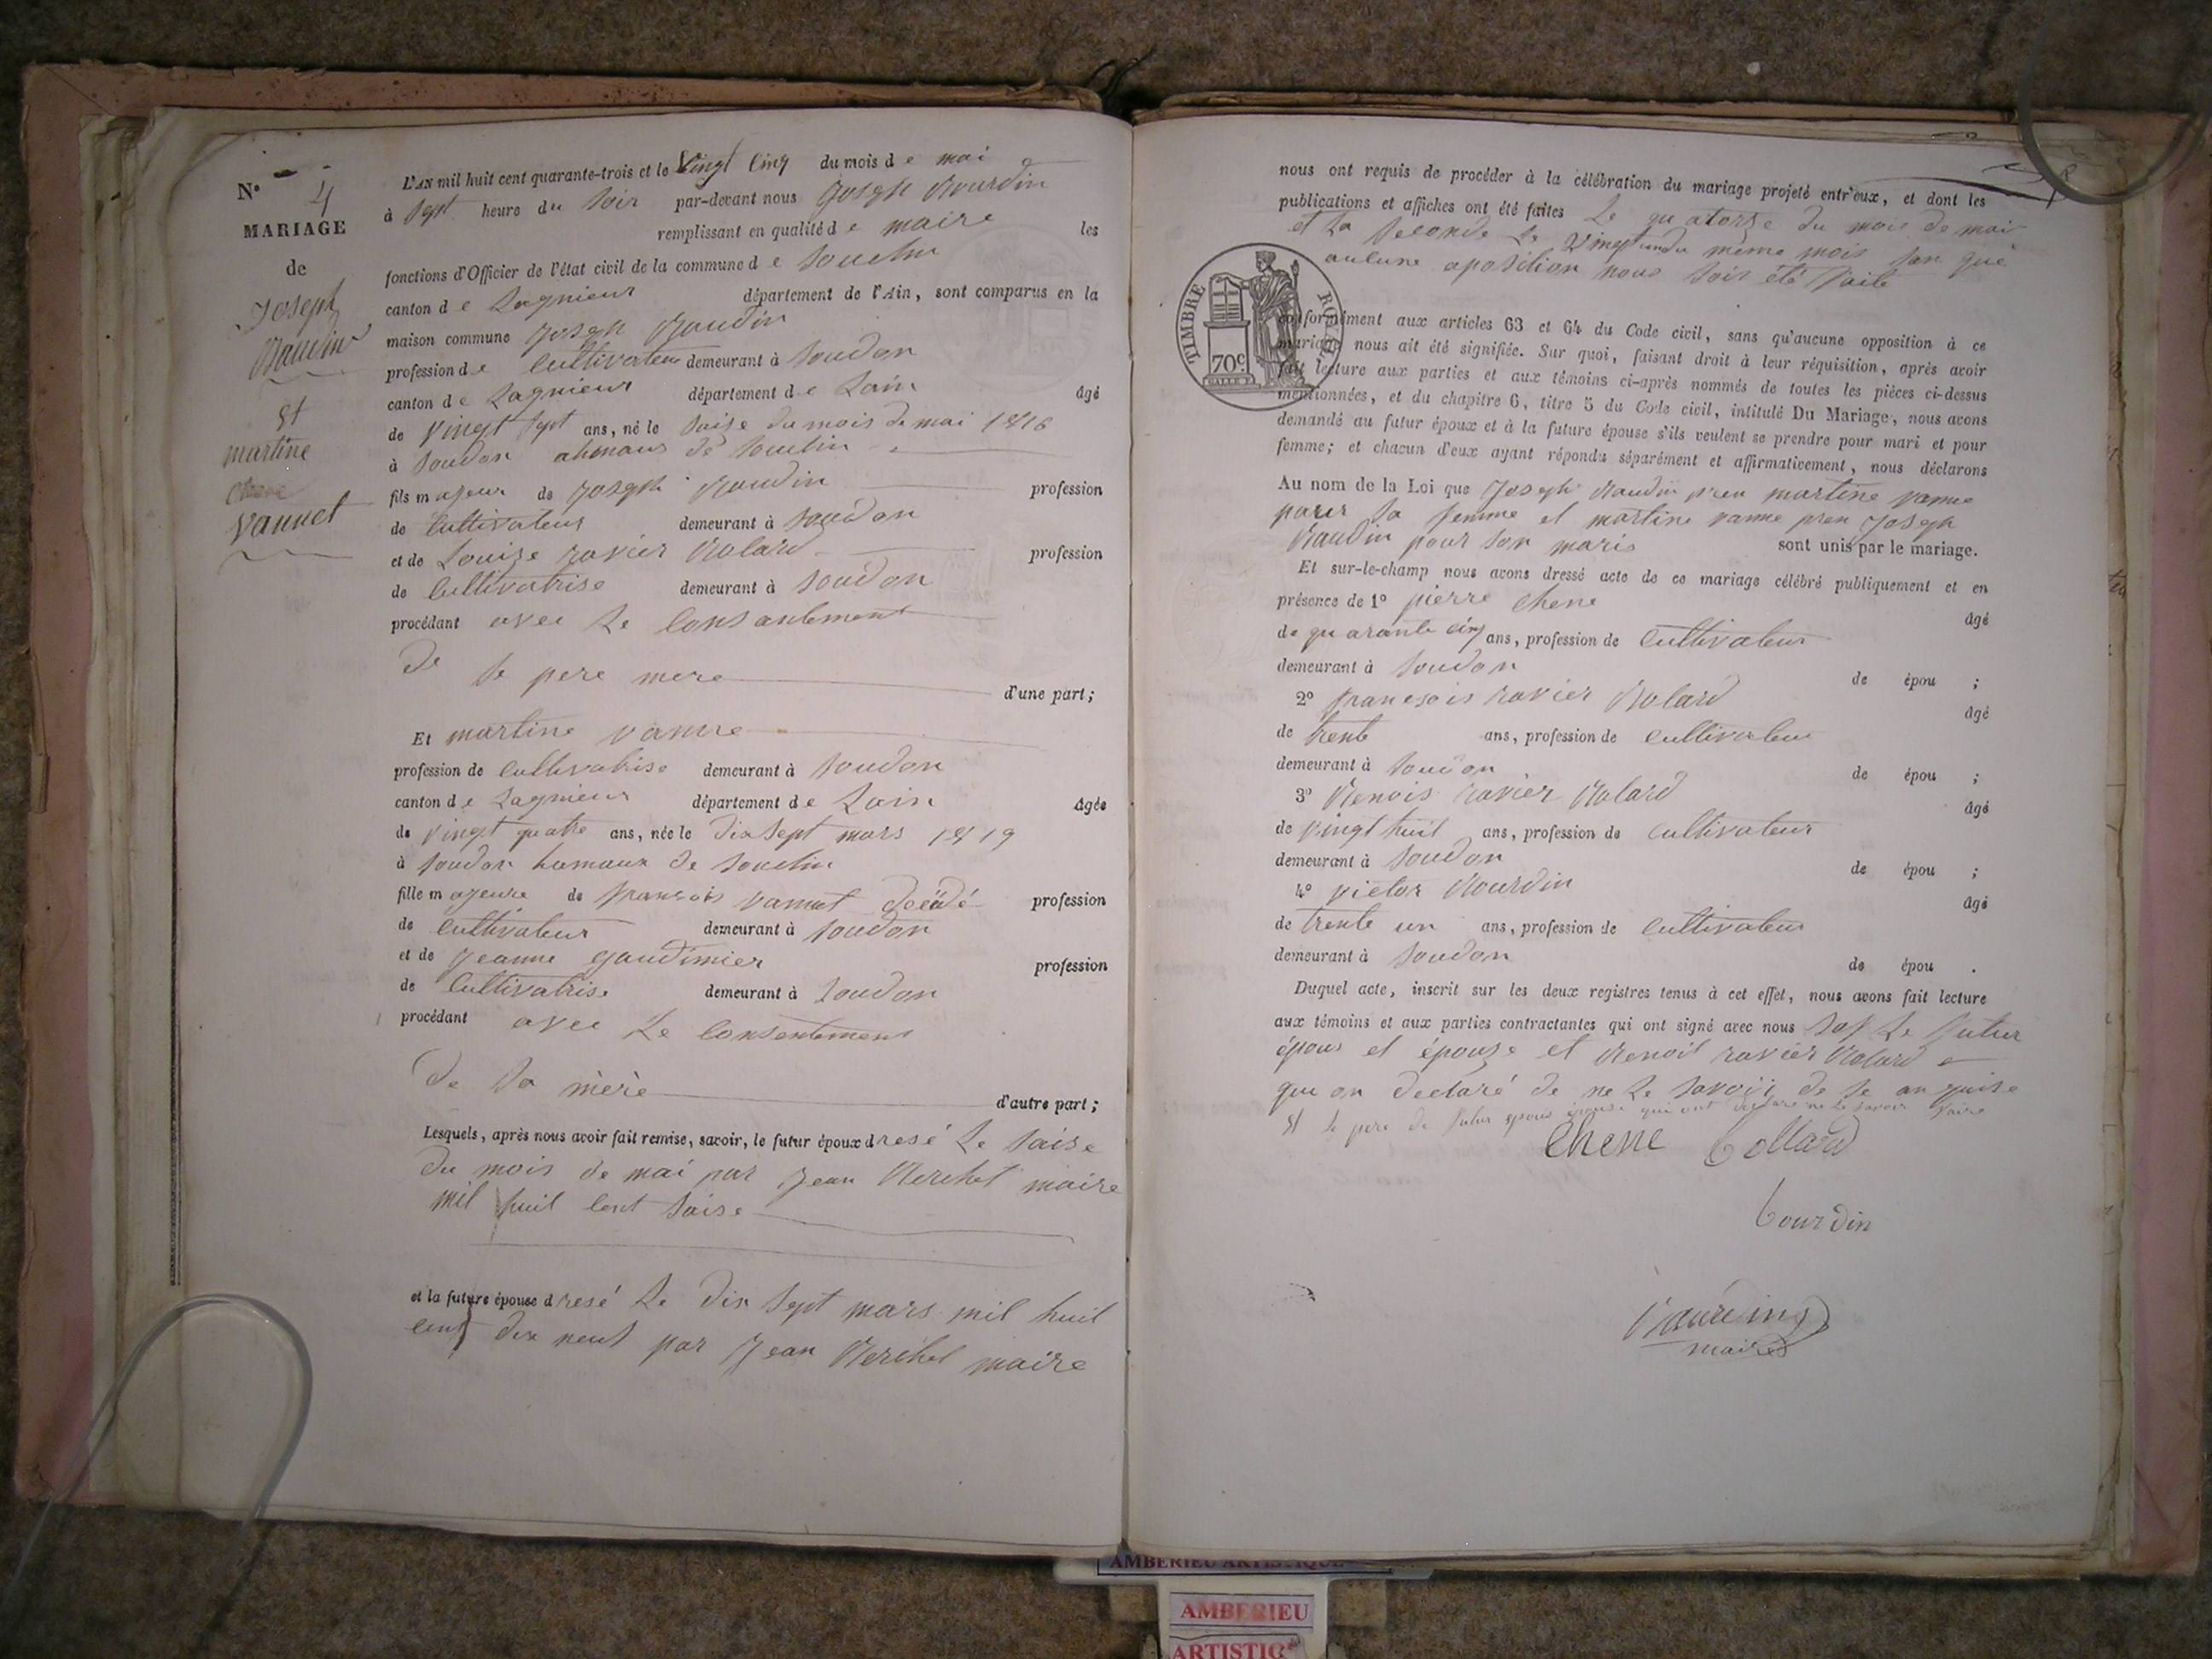 N° 4
MARIAGE
de
Joseph
Baudin
et
martine
Chene
Vannet
L'AN mil huit cent quarante-trois et le Vingt Cinq du mois de mai
à Sept heure du Soir par-devant nous Joseph Bourdin
remplissant en qualité de maire les
fonctions d'Officier de l'état civil de la commune de Souclin
canton de Lagnieux département de l'Ain, sont comparus en la
maison commune Joseph Baudin
profession de Cultivateur demeurant à Soudon
canton de Lagnieux département de Lain âgé
de Vingt Sept ans, né le Saise du mois de mai 1816
à Soudon de Souclin
fils majeur de Joseph Baudin profession
de Cultivateur demeurant à Soudon
et de Louise ravier Bolard profession
de Cultivatrise demeurant à Soudon
procédant avec Le Consantement
de Se pere mere d'une part;
Et martine vanne
profession de Cultivatrise demeurant à Soudon
canton de Lagnieux département de Lain âgée
de Vingt quatre ans, née le Dix Sept mars 1819
à Soudon hamaux de Souclin
fille majeure de françois vannet décédé profession
de Cultivateur demeurant à Soudon
et de Jeanne gaudimier profession
de Cultivatrise demeurant à Soudon
procédant avec Le Consentement
de Sa mère d'autre part;
Lesquels, après nous avoir fait remise, savoir, le futur époux dresé Le Saise
du mois de mai par Jean Berchet maire
mil huit Cent Saise
et la future épouse dresé Le Dix Sept mars mil huit
Cent dix neuf par Jean Berchet maire
nous ont requis de procéder à la célébration du mariage projeté entr'eux, et dont les
publications et affiches ont été faites Le quatorze du mois de mai
et La Seconde Le Vingt un du même mois San que
aucune aposition nous Soit été faite
TIMBRE ROYAL
70 c.
conformément aux articles 63 et 64 du Code civil, sans qu'aucune opposition à ce
mariage nous ait été signifiée. Sur quoi, faisant droit à leur réquisition, après avoir
fait lecture aux parties et aux témoins ci-après nommés de toutes les pièces ci-dessus
mentionnées, et du chapitre 6, titre 5 du Code civil, intitulé Du Mariage, nous avons
demandé au futur époux et à la future épouse s'ils veulent se prendre pour mari et pour
femme; et chacun d'eux ayant répondu séparément et affirmativement, nous déclarons
Au nom de la Loi que Joseph Baudin pren martine vanne
pour Sa femme et martine vanne pren Joseph
Baudin pour Son maris sont unis par le mariage.
Et sur-le-champ nous avons dressé acte de ce mariage célébré publiquement et en
présence de 1° pierre Chene âgé
de quarante cinq ans, profession de Cultivateur
demeurant à Soudon de épou ;
2° françois ravier Bolard âgé
de trente ans, profession de cultivateur
demeurant à Soudon de épou ;
3° Benois ravier Bolard âgé
de Vingt huit ans, profession de Cultivateur
demeurant à Soudon de épou ;
4° victor Bourdin âgé
de trente un ans, profession de Cultivateur
demeurant à Soudon de épou .
Duquel acte, inscrit sur les deux registres tenus à cet effet, nous avons fait lecture
aux témoins et aux parties contractantes qui ont signé avec nous Sof Le futur
épous et épouze et Benoit ravier Bolard
qui on declaré de ne Le Savoir de Se
et le pere de futur epous qui ont declaré ne Le Savoir faire
Chene Collard
Bourdin
Bourdin
maire
AMBERIEU ARTISTIQUE
AMBERIEU
ARTISTIQ